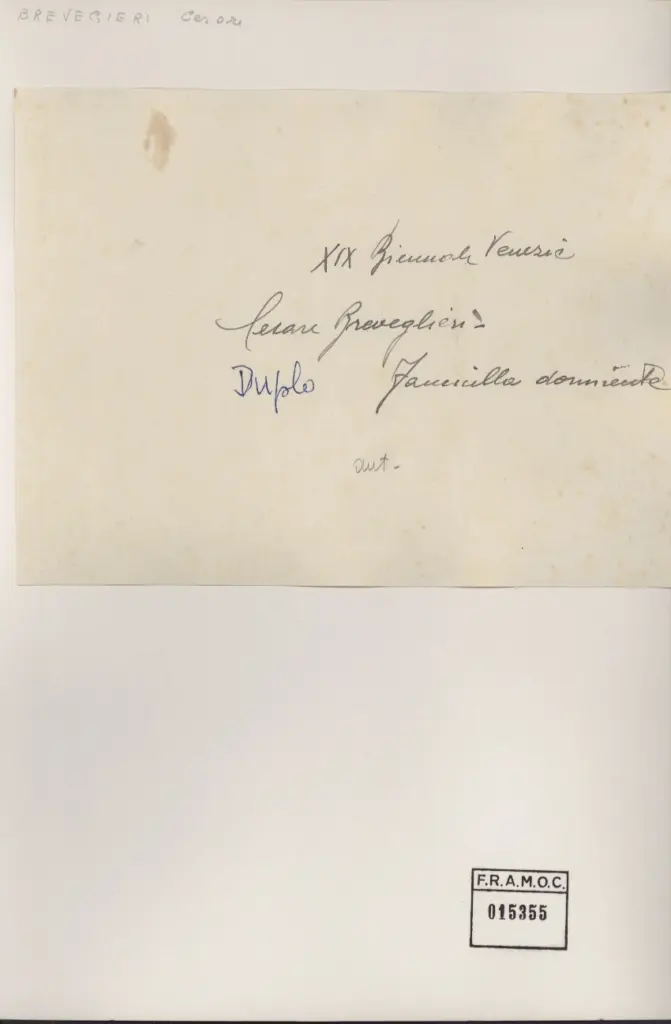 BREVEGIERI Cesare
XIX Biennale Venezia
Cesare Breveglieri -
Duplo Fanciulla dormiente
aut -
F.R.A.M.O.C.
015355